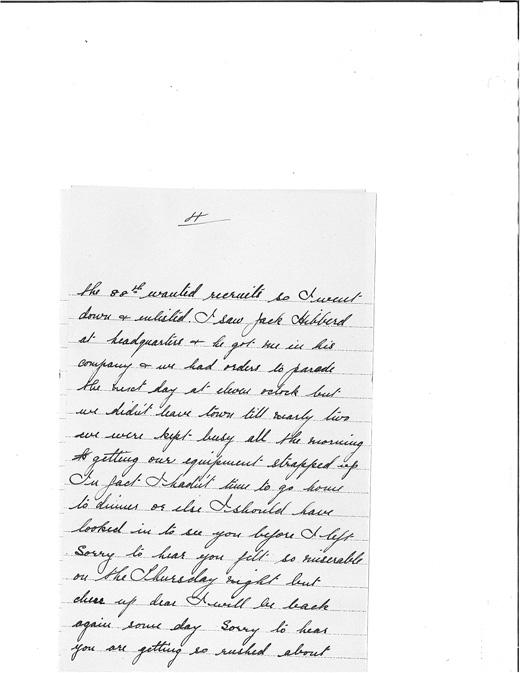 4
the 88th wanted recruits so I went
down & enlisted. I saw Jack Hibberd
at headquarters & he got me in his
company & we had orders to parade
the next day at eleven oclock but
we didn't leave town till nearly two
we were kept busy all the morning
getting our equipment strapped up
In fact I hadn't time to go home
to dinner or else I should have
looked in to see you before I left
Sorry to hear you felt so miserable
on the Thursday night but
cheer up dear I will be back
again some day Sorry to hear
you are getting so rushed about